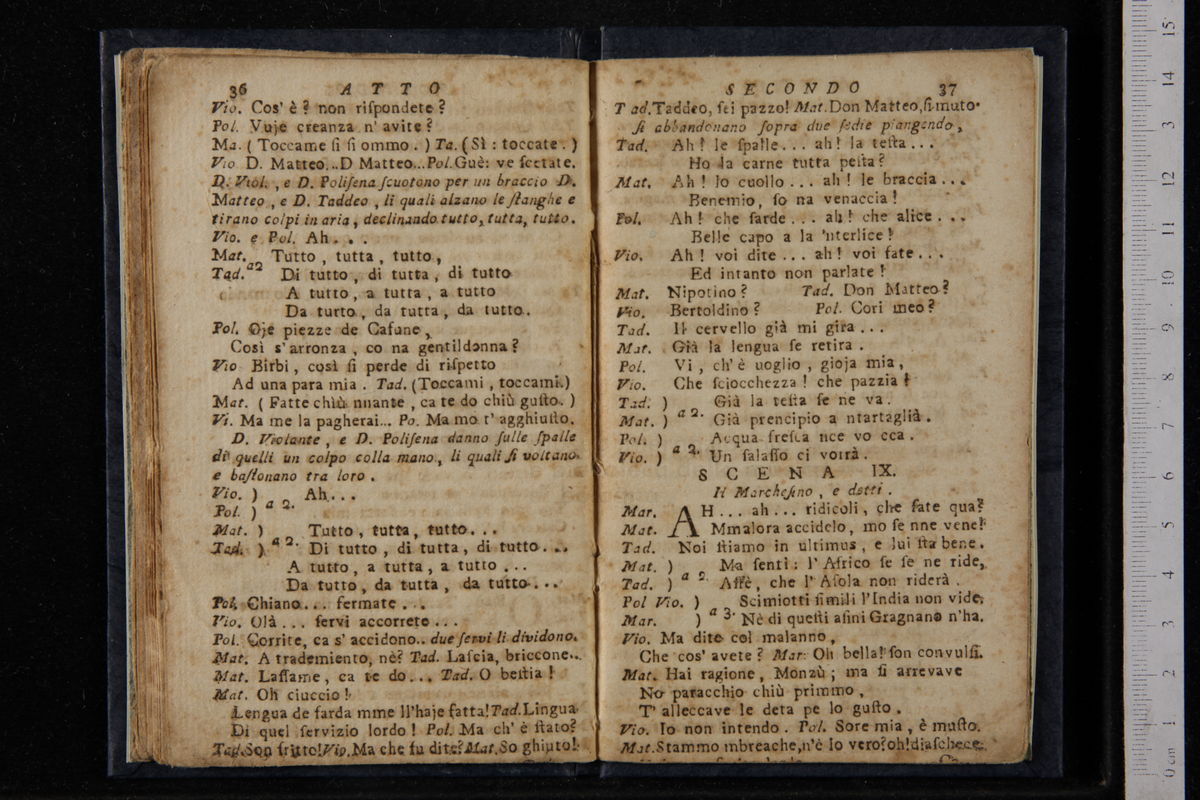 36 ATTO
Vio. Cos' è? non riſpondete?
Pol. Vuje creanza n' avite?
Ma. (Toccame ſi ſi ommo.) Ta. (Sì: toccate.)
Vio D. Matteo...D Matteo...Pol.Guè: ve ſcetate.
D. Viol., e D. Poliſena ſcuotono per un braccio D.
Matteo, e D. Taddeo, li quali alzano le ſtanghe e
tirano colpi in aria, declinando tutto, tutta, tutto.
Vio. e Pol. Ah...
Mat. Tutto, tutta, tutto,
Tad. a2 Di tutto, di tutta, di tutto
A tutto, a tutta, a tutto
Da turto, da tutta, da tutto.
Pol. Oje piezze de Cafune,
Così s'arronza, co na gentildonna?
Vio Birbi, così ſi perde di riſpetto
Ad una para mia. Tad. (Toccami, toccami.)
Mat. (Fatte chiù nnante, ca te do chiù guſto.)
Vi. Ma me la pagherai... Po. Ma mo t' agghiuſto.
D. Violante, e D. Poliſena danno ſulle ſpalle
di quelli un colpo colla mano, li quali ſi voltano
e baſtonano tra loro.
Vio. ) Ah...
Pol. ) a 2.
Mat. ) Tutto, tutta, tutto...
Tad. ) a 2. Di tutto, di tutta, di tutto...
A tutto, a tutta, a tutto...
Da tutto, da tutta, da tutto...
Pol. Chiano... fermate...
Vio. Olà... ſervi accorrete...
Pol. Corrite, ca s' accidono.. due ſervi li dividono.
Mat. A trademiento, nè? Tad. Laſcia, briccone..
Mat. Laſſame, ca te do... Tad. O beſtia!
Mat. Oh ciuccio!
Lengua de farda mme ll'haje fatta! Tad.Lingua
Di quel ſervizio lordo! Pol. Ma ch' è ſtato?
Tad.Son fritto!Vio.Ma che fu dite?Mat.So ghiuto!
SECONDO 37
Tad.Taddeo, ſei pazzo! Mat.Don Matteo,ſi muto.
ſi abbandonano ſopra due ſedie piangendo,
Tad. Ah! le ſpalle... ah! la teſta...
Ho la carne tutta peſta?
Mat. Ah! lo cuollo... ah! le braccia...
Benemio, ſo na venaccia!
Pol. Ah! che ſarde... ah! che alice...
Belle capo a la 'nterlice!
Vio. Ah! voi dite... ah! voi fate...
Ed intanto non parlate!
Mat. Nipotino? Tad. Don Matteo?
Vio. Bertoldino? Pol. Cori meo?
Tad. Il cervello già mi gira...
Mat. Già la lengua ſe retira.
Pol. Vi, ch' è uoglio, gioja mia,
Vio. Che ſciocchezza! che pazzia!
Tad. ) Già la teſta ſe ne va.
Mat. ) a 2. Già prencipio a ntartaglià.
Pol. ) Acqua freſca nce vo cca.
Vio. ) a 2. Un ſalaſſo ci vorrà.
SCENA IX.
Il Marcheſino, e detti.
Mar. AH... ah... ridicoli, che fate qua?
Mat. Mmalora accidelo, mo ſe nne vene!
Tad. Noi ſtiamo in ultimus, e lui ſta bene.
Mat. ) Ma ſenti: l' Africo ſe ſe ne ride,
Tad. ) a 2. Affè, che l' Aſola non riderà.
Pol Vio. ) Scimiotti ſimili l'India non vide.
Mar. ) a 3. Nè di queſti aſini Gragnano n'ha.
Vio. Ma dite col malanno,
Che cos' avete? Mar. Oh bella! ſon convulſi.
Mat. Hai ragione, Monzù; ma ſi arrevave
No paracchio chiù primmo,
T' alleccave le deta pe lo guſto.
Vio. Io non intendo. Pol. Sore mia, è muſto.
Mat.Stammo mbreache,n'è lo vero?oh!diaſchece